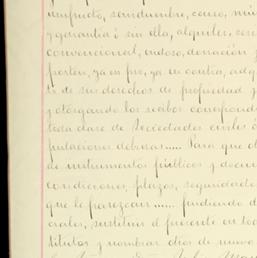 usufructo, servidumbre, censo,
y garantia; sin ella, alquiler,
convencional, endoso, donación y
porten, ya en pro, ya en contra, adq
de sus derechos de propiedad y
y otorgando los recibos correspond
toda clase de Sociedades civiles ó
putaciones debidas..... Para que ot
de instrumentos públicos y docum
condiciones, plazos, seguridades
que le parezcan...... pudiendo
sustituir el presente en todo
titutos y nombrar otros de nuevo